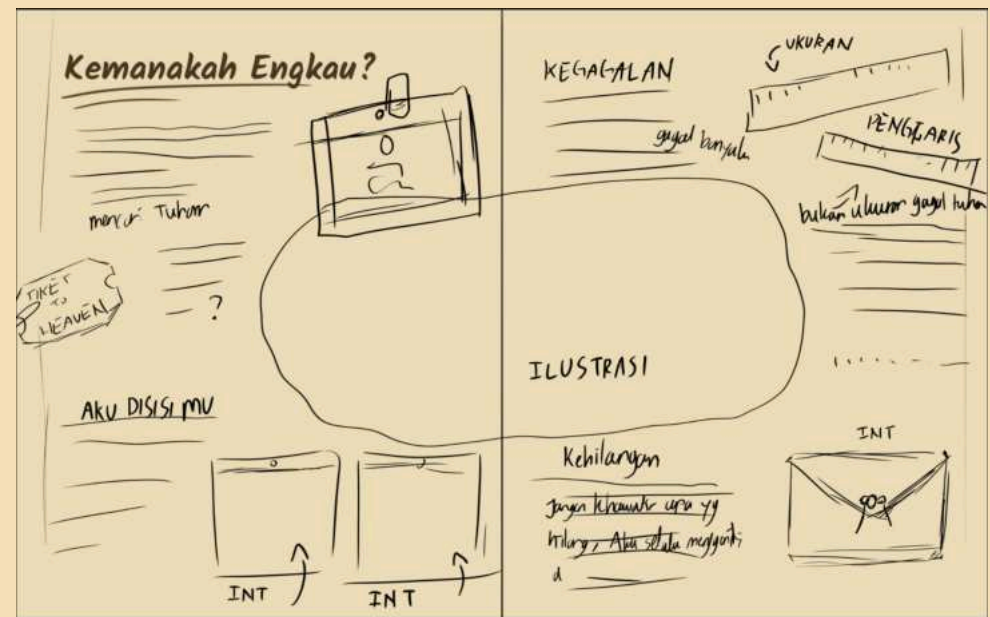 Kemanakah Engkau?
mencari Tuhan
TIKET
TO
HEAVEN
?
AKU DISISI MU
INT
INT
KEGAGALAN
gagal
UKURAN
PENGGARIS
bukan ukuran gagal tuhan
ILUSTRASI
Kehilangan
Jangan khawatir apa yg
hilang, Aku selalu mengganti
INT